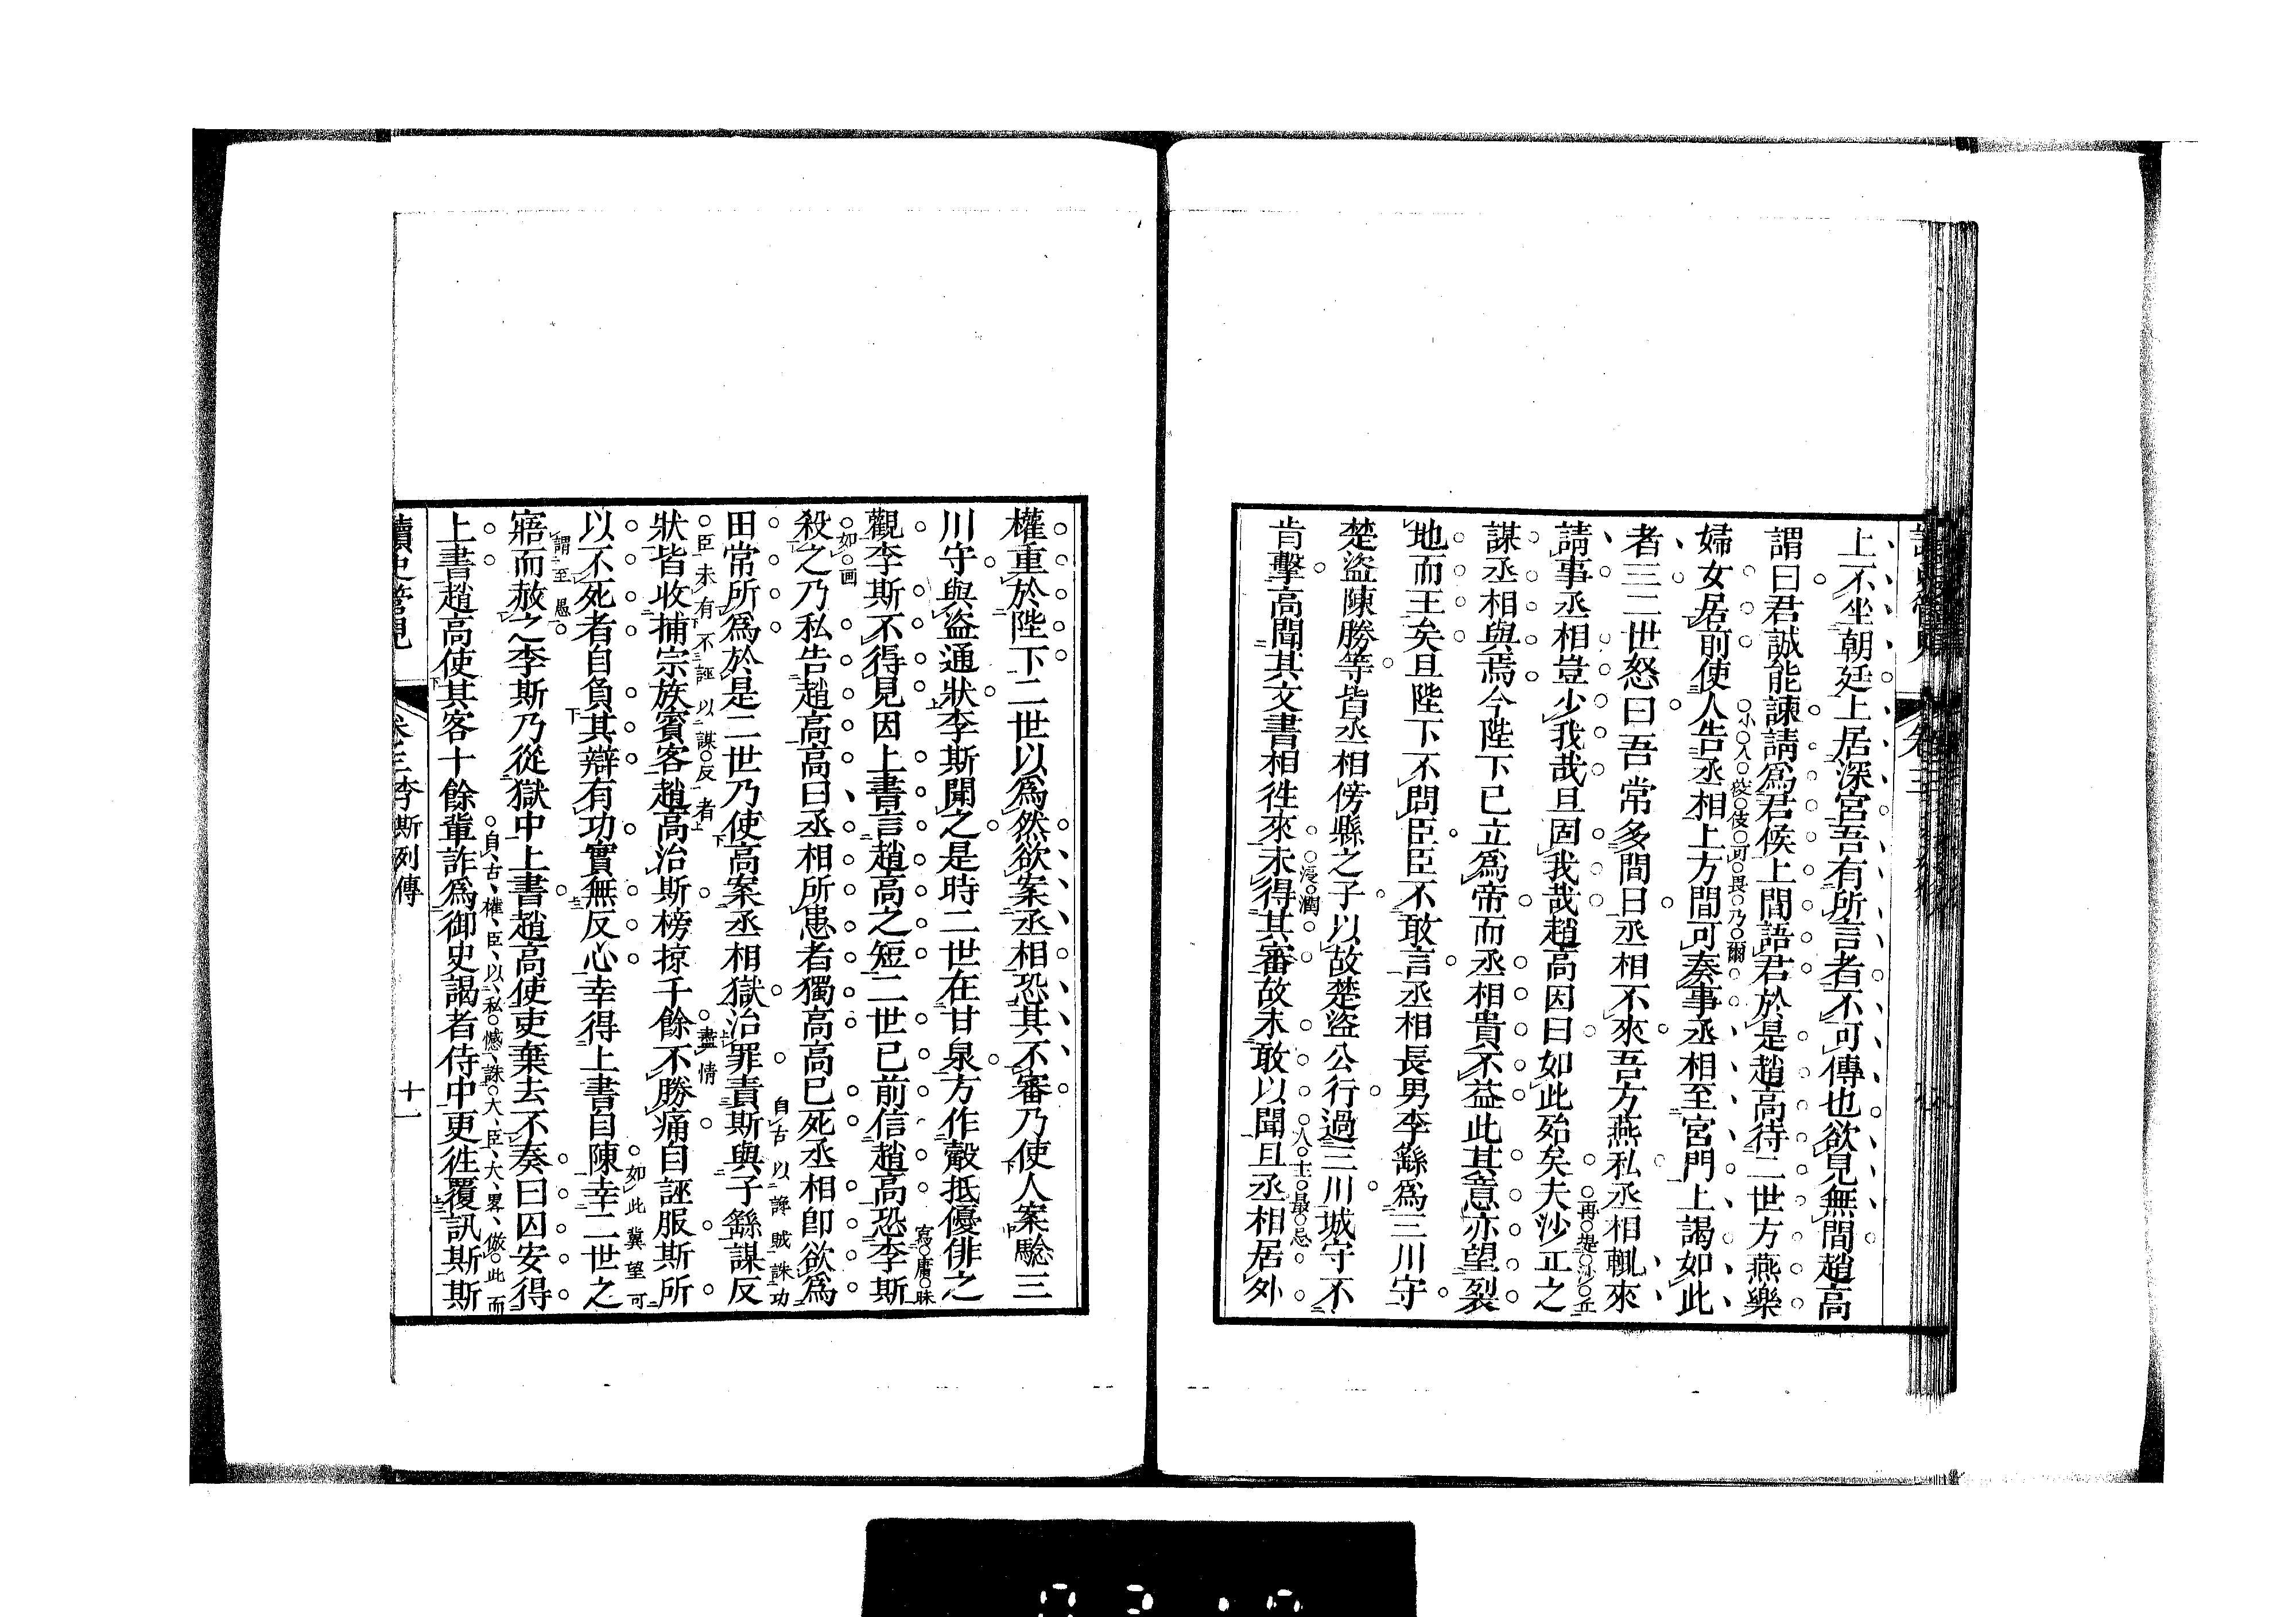 上不坐朝廷上居深宮吾有所言者不可傳也欲見無間趙高
謂曰君誠能諫請爲君候上間語君於是趙高待二世方燕樂
婦女居前使人告丞相上方間可奏事丞相至宮門上謁如此
小人從伎可畏乃爾
者三二世怒曰吾常多間日丞相不來吾方燕私丞相輒來
請事丞相豈少我哉且固我哉趙高因曰如此殆矣夫沙丘之
再提沙丘
謀丞相與焉今陛下已立爲帝而丞相貴不益此其意亦望裂
地而王矣且陛下不問臣臣不敢言丞相長男李繇爲三川守
楚盜陳勝等皆丞相傍縣之子以故楚盜公行過三川城守不
浸潤
人主最忌
肯擊高聞其文書相徃來未得其審故未敢以聞且丞相居外
權重於陛下二世以爲然欲案丞相恐其不審乃使人案驗三
川守與盜通狀李斯聞之是時二世在甘泉方作觳抵優俳之
寫廣昧
觀李斯不得見因上書言趙高之短二世已前信趙高恐李斯
如画
殺之乃私告趙高高曰丞相所患者獨高高已死丞相卽欲爲
自古以諫賊誅功
田常所爲於是二世乃使高案丞相獄治罪責斯與子繇謀反
臣未有不誣以謀反者
盡情
狀皆收捕宗族賓客趙高治斯榜掠千餘不勝痛自誣服斯所
如此冀望可
以不死者自負其辯有功實無反心幸得上書自陳幸二世之
謂至愚
寤而赦之李斯乃從獄中上書趙高使吏棄去不奏曰囚安得
自古權臣以私憾誅大臣大畧倣此而
上書趙高使其客十餘輩詐爲御史謁者侍中更徃覆訊斯斯
讀史管見
卷三李斯列傳
十一